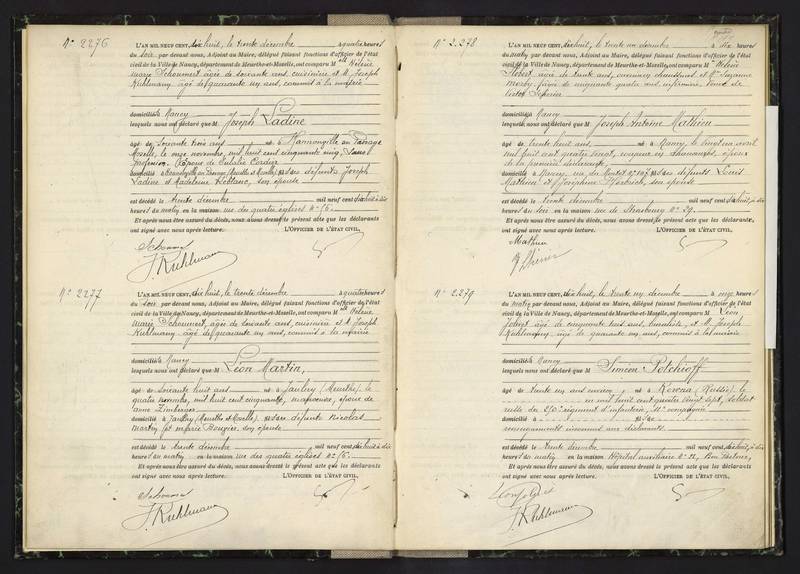 N° 2276
L'AN MIL NEUF CENT, dix huit, le trente décembre à quatre heures
du soir par devant nous, Adjoint au Maire, délégué faisant fonctions d'officier de l'état
civil de la Ville de Nancy, département de Meurthe-et-Moselle, ont comparu M elle Hélène
marie Schoumert âgée de soixante ans, cuisinière et M. Joseph
Kuhlmann âgé de quarante un ans, commis à la mairie
domiciliés à Nancy
lesquels nous ont déclaré que M Joseph Ladine
âgé de Soixante trois ans né à Hannonville au Passage
Moselle, le onze novembre, mil huit cent cinquante cinq, sans
profession, époux de Eulalie Cordier
domicilié à Hannonville au Passage (Meurthe et Moselle) fils des défunts Joseph
Ladine et Madeleine Leblanc, son épouse
est décédé le trente décembre mil neuf cent dix huit, à dix
heures du matin en la maison rue des quatre églises n° 15.
Et après nous être assuré du décès, nous avons dressé le présent acte que les déclarants
ont signé avec nous après lecture. L'OFFICIER DE L'ÉTAT CIVIL,
J. Kuhlmann
N° 2277
L'AN MIL NEUF CENT, dix huit, le trente décembre à quatre heures
du soir par devant nous, Adjoint au Maire, délégué faisant fonctions d'officier de l'état
civil de la Ville de Nancy, département de Meurthe-et-Moselle, ont comparu M elle Hélène
marie Schoumert, âgée de soixante ans, cuisinière et M. Joseph
Kuhlmann âgé de quarante un ans, commis à la mairie
domiciliés à Nancy
lesquels nous ont déclaré que M Léon Martin,
âgé de Soixante huit ans né à Jaulny (Meurthe) le
quatre novembre, mil huit cent cinquante, manoeuvre, époux de
Anne
domicilié à Jaulny (Meurthe et Moselle) fils des défunts Nicolas
Martin et marie Mougier, son épouse
est décédé le trente décembre mil neuf cent dix huit, à dix
heures du matin en la maison rue des quatre églises n° 15.
Et après nous être assuré du décès, nous avons dressé le présent acte que les déclarants
ont signé avec nous après lecture. L'OFFICIER DE L'ÉTAT CIVIL,
J. Kuhlmann
N° 2.278
L'AN MIL NEUF CENT, dix huit, le trente un décembre à dix heures
du matin par devant nous, Adjoint au Maire, délégué faisant fonctions d'officier de l'état
civil de la Ville de Nancy, département de Meurthe-et-Moselle, ont comparu M Hélène
âgée de trente ans, et Mme Suzanne
de cinquante quatre ans, infirmière,
domiciliés à Nancy
lesquels nous ont déclaré que M Joseph Antoine Mathieu
âgé de trente huit ans né à Nancy, le vingt un août
mil huit cent quatre vingt, époux
de la première déclarante
domicilié à Nancy, rue du Montet n° 107 fils des défunts Louis
Mathieu et Joséphine son épouse
est décédé le trente décembre mil neuf cent dix huit, à
heures du soir en la maison rue de Strasbourg n° 29.
Et après nous être assuré du décès, nous avons dressé le présent acte que les déclarants
ont signé avec nous après lecture. L'OFFICIER DE L'ÉTAT CIVIL,
Mathieu
N° 2.279
L'AN MIL NEUF CENT, dix huit, le trente un décembre à onze heures
du matin par devant nous, Adjoint au Maire, délégué faisant fonctions d'officier de l'état
civil de la Ville de Nancy, département de Meurthe-et-Moselle, ont comparu M Léon
âgé de cinquante huit ans, et M. Joseph
Kuhlmann, âgé de quarante un ans, commis à la mairie
domiciliés à Nancy
lesquels nous ont déclaré que M Siméon Polchioff
âgé de trente un ans environ né à Kovena (Russie) le
en mil huit cent quatre vingt sept, soldat
russe du régiment d'infanterie, compagnie
domicilié à fils de
renseignements inconnus aux déclarants
est décédé le trente décembre mil neuf cent dix huit, à dix
heures du matin en la maison Hôpital auxiliaire N° 12, Bon Pasteur,
Et après nous être assuré du décès, nous avons dressé le présent acte que les déclarants
ont signé avec nous après lecture. L'OFFICIER DE L'ÉTAT CIVIL,
J. Kuhlmann